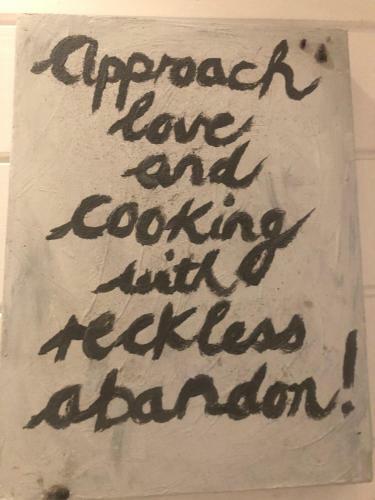 Approach
love
and
cooking
with
reckless
abandon!